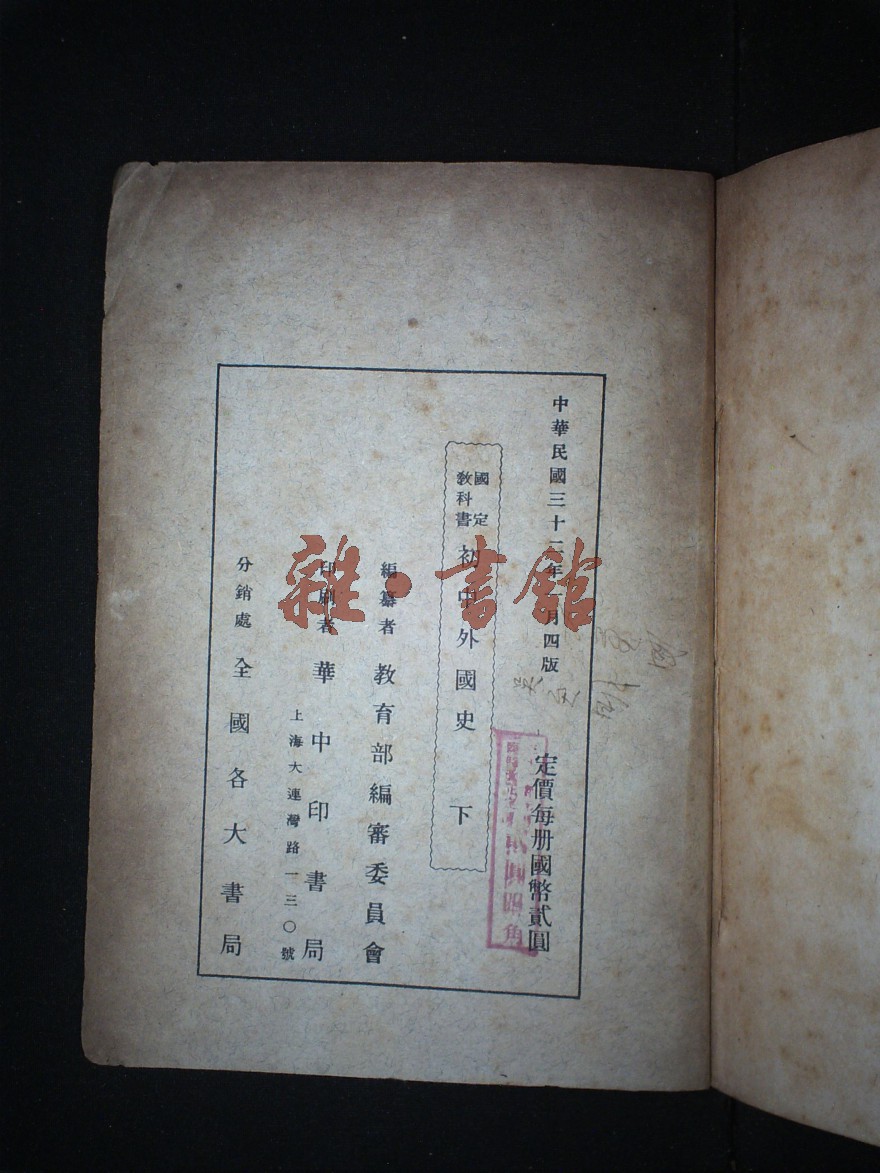 中華民國三十二年 月四版
定價每册國幣貳圓
國定
教科書
初中外國史 下
編纂者 教育部編審委員會
印刷者 華中印書局
上海大連灣路一三〇號
分銷處 全國各大書局
雜·書館